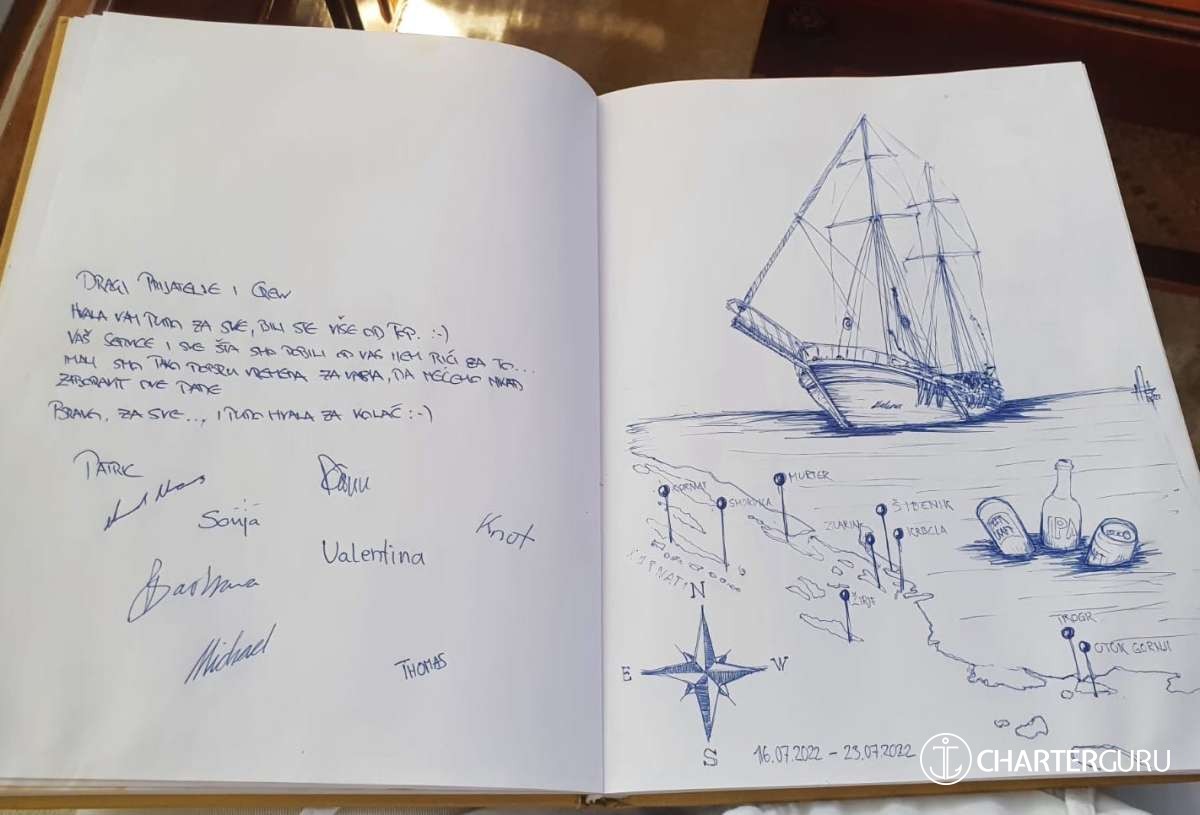 DRAGI PRIJATELJE I CREW
HVALA VAM PUNO ZA SVE, BILI STE VIŠE OD TOP. :-)
VAŠ SERVICE I SVE ŠTA SMO DOBILI OD VAS NEM RIČI ZA TO...
IMALI SMO TAKO DOBRU VREMENA ZA VAMA, DA NEĆEMO NIKAD
ZABORAVIT OVE DANE
BRAVO, ZA SVE..., I PUNO HVALA ZA KOLAČ :-)
PATRIC
Sonja
Knot
Valentina
Barbara
Michael
THOMAS
KORNAT
SMOKVICA
MURTER
ŠIBENIK
ZLARIN
KRBELA
KORNATI
ŽIRJE
IPA
TROGIR
OTOK GORNJI
N
E
W
S
16.07.2022 – 23.07.2022
CHARTERGURU